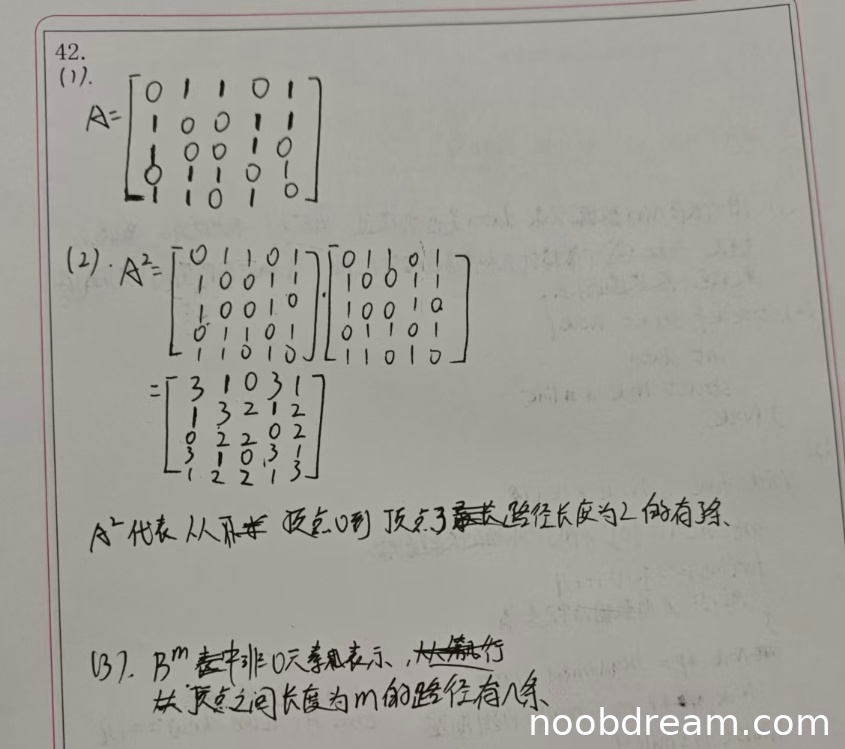 42.
(1).
A=
0 1 1 0 1
1 0 0 1 1
1 0 0 1 0
0 1 1 0 1
1 1 0 1 0
(2). A²=
0 1 1 0 1 · 0 1 1 0 1
1 0 0 1 1 1 0 0 1 1
1 0 0 1 0 1 0 0 1 0
0 1 1 0 1 0 1 1 0 1
1 1 0 1 0 1 1 0 1 0
=
3 1 0 3 1
1 3 2 1 2
0 2 2 0 2
3 1 0 3 1
1 2 2 1 3
A²代表从 顶点0到顶点3 路径长度为2的有3条、
(3). Bᵐ 中非0元素 表示、
从顶点之间长度为m的路径有八条
noobdream.com